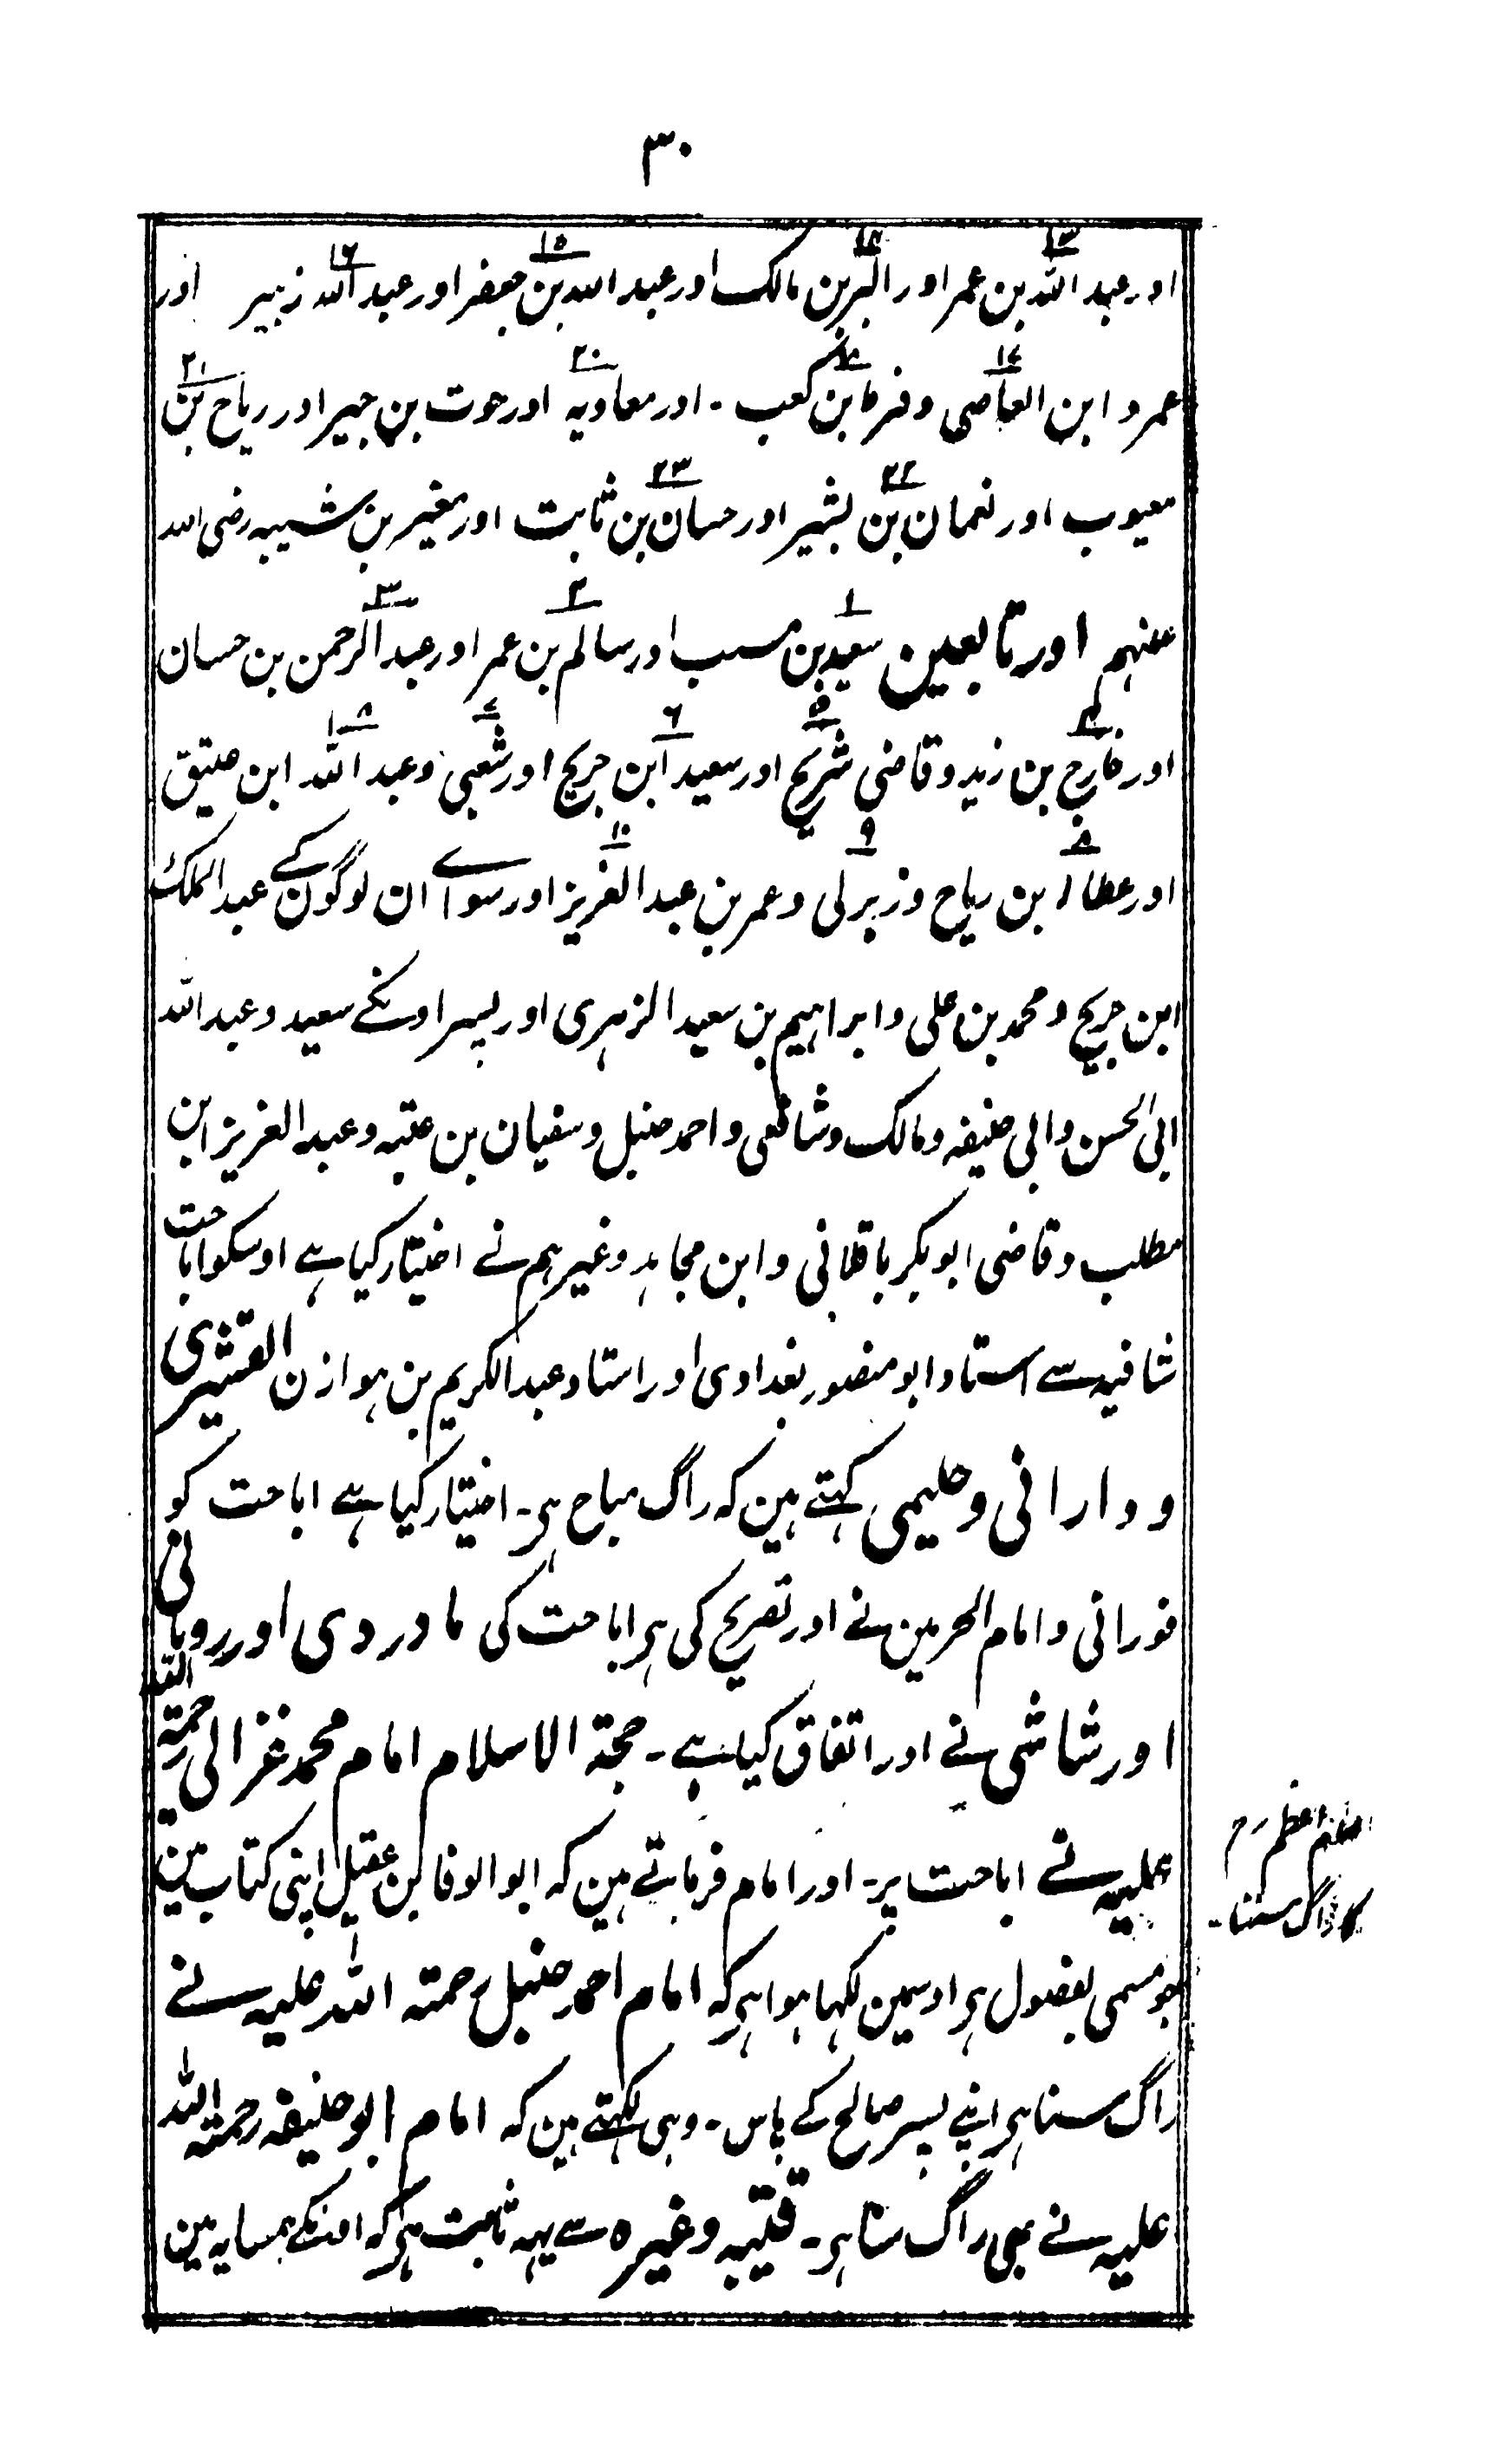 ۳۰
اور عبد اللہ بن عمر اور البر بن مالک اور عبد اللہ بن جعفر اور عبد اللہ زبیر اور
عمرو ابن العاصی و قرظ بن کعب ۔ اور معاویہ اور حوت بن جبیر اور ریاح بن
معیوب اور نعمان بن بشیر اور حسان بن ثابت اور مغیر بن شیبہ رضی اللہ
عنہم اور تابعین سعید بن مسیب اور سالم بن عمر اور عبد الرحمن بن حسان
اور خارج بن زید و قاضی شریح اور سعید ابن جریح اور شعبی و عبد اللہ ابن عتیق
اور عطاء بن ریاح و زہرلی و عمر بن عبد العزیز اور سواے ان لوگون کے عبد الملک
ابن جریح و محمد بن علی و ابراہیم بن سعید الزہری اور پسر اونکے سعید و عبد اللہ
ابی الحسن وابی حنیفہ و مالک و شافعی و احمد حنبل و سفیان بن عتبہ و عبد العزیز ابن
مطلب و قاضی ابو بکر باقلانی و ابن مجاہد و غیرہم نے اختیار کیا ہے اوسکو اباحت
شافیہ سے استاد ابو منصور بغدادی اور استاد عبد الکریم بن ہوازن القشیری
و دارانی و حلیمی کہتے ہین کہ راگ مباح ہی ۔ اختیار کیا ہے اباحت کو
فورانی و امام الحرمین نے اور تصریح کی ہی اباحت کی ماوردی اور رویانی
اور شاشی نے اور اتفاق کیا ہے ۔ حجۃ الاسلام امام محمد غزالی رحمۃ اللہ
علیہ نے اباحت پر ۔ اور امام فرماتے ہین کہ ابو الوفا بن عقیل اپنی کتاب مین
جو مسمی بفضول ہی اوسمین لکہا ہوا ہی کہ امام احمد حنبل رحمتہ اللہ علیہ نے
راگ سنا ہی اپنے پسر صالح کے پاس ۔ وہی لکہتے ہین کہ امام ابو حنیفہ رحمتہ اللہ
علیہ نے بھی راگ سنا ہی ۔ قتیبہ وغیرہ سے یہہ ثابت ہی کہ انکے ہمسایہ مین
امام اعظم رح
کا راگ سننا ۔